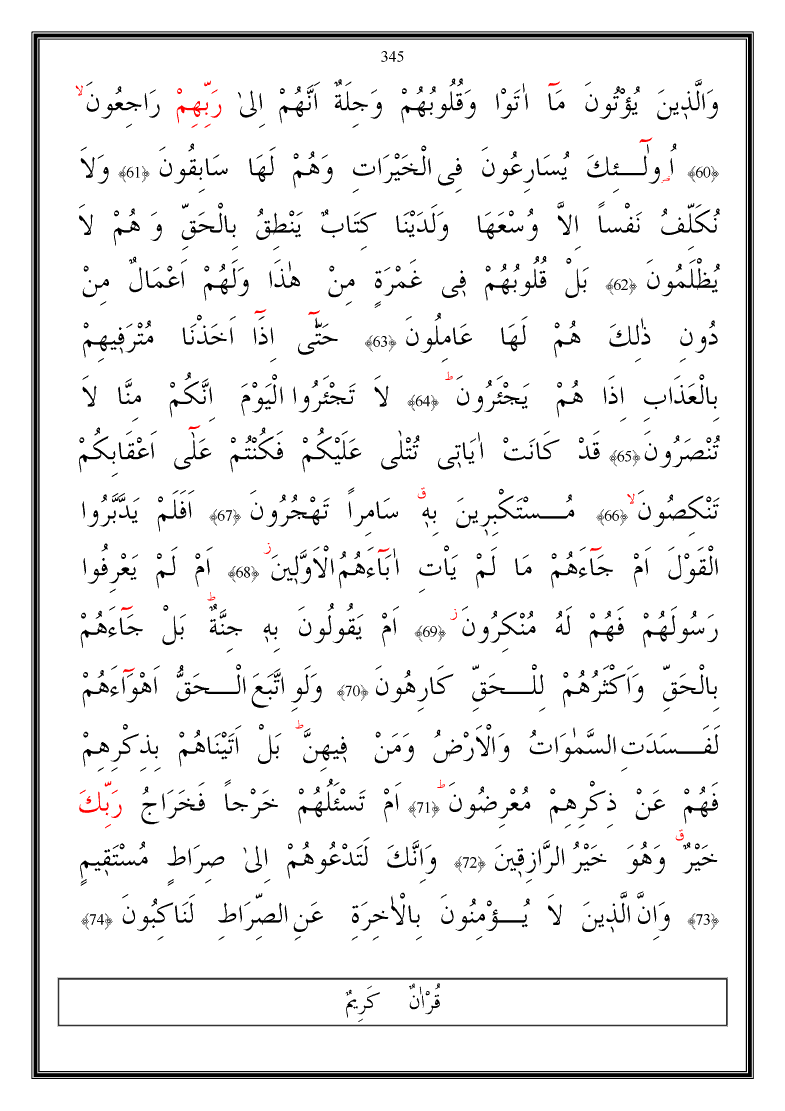 345
وَالَّذ۪ينَ يُؤْتُونَ مَٓا اٰتَوْا وَقُلُوبُهُمْ وَجِلَةٌ اَنَّهُمْ اِلىٰ رَبِّهِمْ رَاجِعُونَۙ
﴿60﴾ اُو۬لٰٓـئِكَ يُسَارِعُونَ فِى الْخَيْرَاتِ وَهُمْ لَهَا سَابِقُونَ ﴿61﴾ وَلاَ
نُكَلِّفُ نَفْساً اِلاَّ وُسْعَهَا وَلَدَيْنَا كِتَابٌ يَنْطِقُ بِالْحَقِّ وَ هُمْ لاَ
يُظْلَمُونَ ﴿62﴾ بَلْ قُلُوبُهُمْ ف۪ى غَمْرَةٍ مِنْ هٰذَا وَلَهُمْ اَعْمَالٌ مِنْ
دُونِ ذٰلِكَ هُمْ لَهَا عَامِلُونَ ﴿63﴾ حَتّٰٓى اِذَٓا اَخَذْنَا مُتْرَف۪يهِمْ
بِالْعَذَابِ اِذَا هُمْ يَجْئَرُونَۜ ﴿64﴾ لاَ تَجْئَرُوا الْيَوْمَ اِنَّكُمْ مِنَّا لاَ
تُنْصَرُونَ ﴿65﴾ قَدْ كَانَتْ اٰيَات۪ى تُتْلٰى عَلَيْكُمْ فَكُنْتُمْ عَلٰٓى اَعْقَابِكُمْ
تَنْكِصُونَۙ ﴿66﴾ مُـسْتَكْبِر۪ينَ بِه۪ۗ سَامِراً تَهْجُرُونَ ﴿67﴾ اَفَلَمْ يَدَّبَّرُوا
الْقَوْلَ اَمْ جَٓاءَهُمْ مَا لَمْ يَاْتِ اٰبَٓاءَهُمُ الْاَوَّل۪ينَۘ ﴿68﴾ اَمْ لَمْ يَعْرِفُوا
رَسُولَهُمْ فَهُمْ لَهُ مُنْكِرُونَۘ ﴿69﴾ اَمْ يَقُولُونَ بِه۪ جِنَّةٌۜ بَلْ جَٓاءَهُمْ
بِالْحَقِّ وَاَكْثَرُهُمْ لِلْـحَقِّ كَارِهُونَ ﴿70﴾ وَلَوِ اتَّبَعَ الْـحَقُّ اَهْوَٓاءَهُمْ
لَفَـسَدَتِ السَّمٰوَاتُ وَالْاَرْضُ وَمَنْ ف۪يهِنَّۜ بَلْ اَتَيْنَاهُمْ بِذِكْرِهِمْ
فَهُمْ عَنْ ذِكْرِهِمْ مُعْرِضُونَۜ ﴿71﴾ اَمْ تَسْئَلُهُمْ خَرْجاً فَخَرَاجُ رَبِّكَ
خَيْرٌۗ وَهُوَ خَيْرُ الرَّازِق۪ينَ ﴿72﴾ وَاِنَّكَ لَتَدْعُوهُمْ اِلىٰ صِرَاطٍ مُسْتَق۪يمٍ
﴿73﴾ وَاِنَّ الَّذ۪ينَ لاَ يُـؤْمِنُونَ بِالْاٰخِرَةِ عَنِ الصِّرَاطِ لَنَاكِبُونَ ﴿74﴾
قُرْاٰنٌ كَرِيمٌ